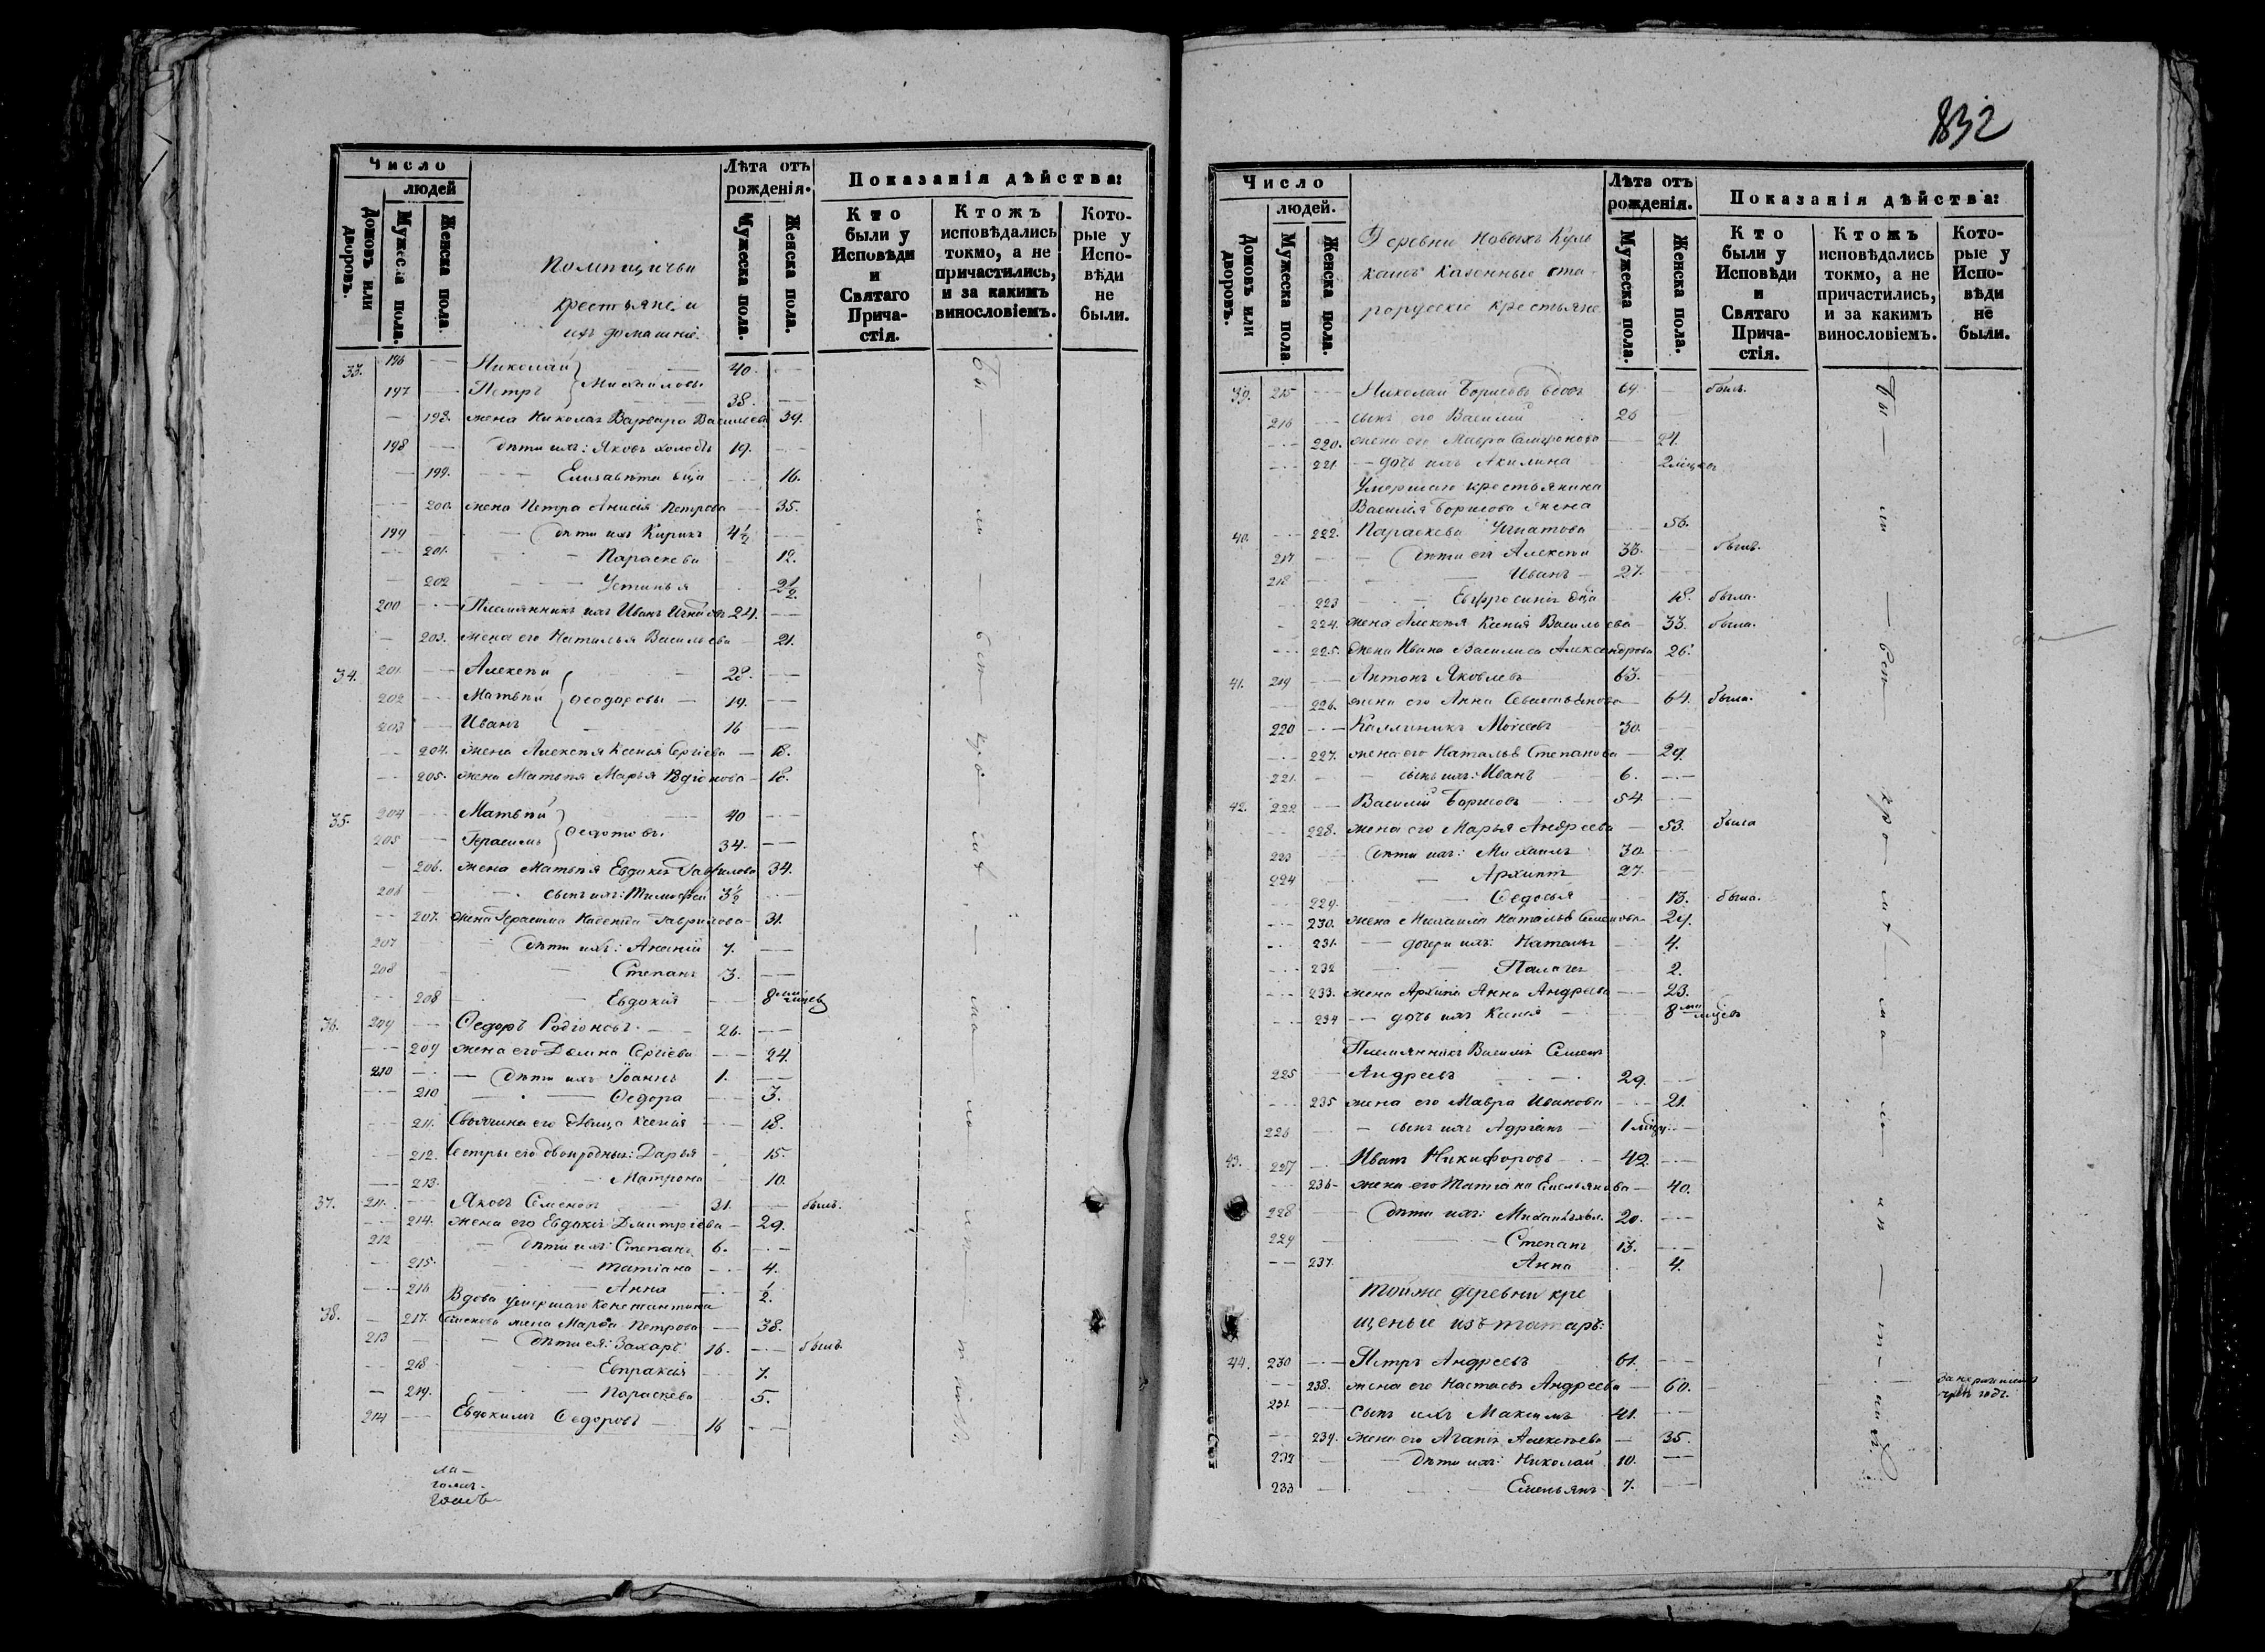 832
Число
Лѣта отъ
рожденія.
Показанія дѣйства:
людей
Домовъ или
дворовъ.
Мужеска пола.
Женска пола.
Помѣщичьи
крестьяне и
ихъ домашніе.
Мужеска пола.
Женска пола.
Кто
были у
Исповѣди
и
Святаго
Прича-
стія.
Ктожъ
исповѣдались
токмо, а не
причастились,
и за какимъ
винословіемъ.
Кото-
рые у
Испо-
вѣди
не
были.
33. 196 Николай 40.
197 Петръ Михайловы 38.
198. жена Николая Варвара Васильева 39.
198 дѣти ихъ: Яковъ холостъ 19.
199. Елизавѣта 16.
200. жена Петра Анисія Петрова 35.
199 дѣти ихъ Кирикъ 4½
201. Параскева 12.
202 Устинья 2½.
200 Племянникъ ихъ Иванъ 24.
203. жена его Наталья Васильева 21.
34. 201. Алексѣй 28.
202 Матвѣй Ѳеодоровы 19.
203 Иванъ 16
204. жена Алексѣя Ксенія Сергіева 18.
205. жена Матвѣя Марья Родіонова 18.
35. 204 Матвѣй 40
205 Герасимъ Ѳедотовы. 34.
206. жена Матвѣя Евдокія Гаврилова 34.
206 сынъ ихъ: Тимоѳей 3½
207. жена Герасима Гаврилова 31.
207 дѣти ихъ: Ананій 7.
208 Степанъ 3.
208 Евдокія 8
36. 209 Ѳедоръ Родіоновъ 26.
209 жена его Домна Сергіева 24.
210 дѣти ихъ Іоаннъ 1.
210 Ѳедора 3.
211. Своячина его дѣвица Ксенія 18.
212. Сестры его двоюродныя: Дарья 15.
213. Матрона 10.
37. 211. Яковъ Семеновъ 31. былъ.
214. жена его Евдокія Дмитріева 29.
212 дѣти ихъ: Степанъ 6.
215. Татіана 4.
216 Анна ½.
Вдова умершаго Константина
38. 217. Семенова жена Марѳа Петрова 38.
213 дѣти ея: Захаръ 16. былъ
218. Евпраксія 7.
219. Параскева 5.
214 Евдокимъ Ѳедоровъ 16
Число
Лѣта отъ
рожденія.
Показанія дѣйства:
людей.
Домовъ или
дворовъ.
Мужеска пола
Женска пола.
Деревни Новыхъ
казенные ста-
рорусскіе крестьяне
Мужеска пола.
Женска пола.
Кто
были у
Исповѣди
и
Святаго
Прича-
стія.
Ктожъ
исповѣдались
токмо, а не
причастились,
и за какимъ
винословіемъ.
Кото-
рые у
Испо-
вѣди
не
были.
39. 215 Николай Борисовъ вдовъ 64. былъ.
216 сынъ его Василій 26
220. жена его Мавра 24.
221 дочь ихъ Акилина 2
Умершаго крестьянина
Василія Борисова жена
40. 222. Параскева Игнатова 56.
217 дѣти ея Алексѣй 33. былъ.
218 Иванъ 27.
223 Евфросинія 18. была.
224. жена Алексѣя Ксенія Васильева 33. была.
225. жена Ивана Василиса Александрова 26.
41. 219 Антонъ Яковлевъ 63.
226. жена его Анна Севастьянова 64. была.
220 Каллиникъ Моисеевъ 30.
227. жена его Наталья Степанова 29.
221. сынъ ихъ: Иванъ 6.
42. 222 Василій Борисовъ 54.
228. жена его Марья Андреева 53. была
223 дѣти ихъ: Михаилъ 30.
224 Архипъ 27.
229. Ѳедосья 13. была.
230. жена Михаила Наталья Семенова 29.
231. дочери ихъ: Наталья 4.
232 Палагея 2.
233. жена Архипа Анна Андреева 23.
234 дочь ихъ Ксенія 8
Племянникъ Василія Семенъ
225 Андреевъ 29.
235 жена его Мавра Иванова 21.
226 сынъ ихъ Адріанъ 1
43. 227 Иванъ Никифоровъ 42.
236 жена его Татіана Емельянова 40.
228 дѣти ихъ: Михаилъ 20.
229 Степанъ 13.
237. Анна 4.
Тойже деревни кре
щеные изъ татаръ:
44. 230 Петръ Андреевъ 61.
238. жена его Настасья Андреева 60.
231. сынъ ихъ Максимъ 41.
239. жена его Агапія Алексѣева 35.
232 дѣти ихъ: Николай 10.
233 Емельянъ 7.